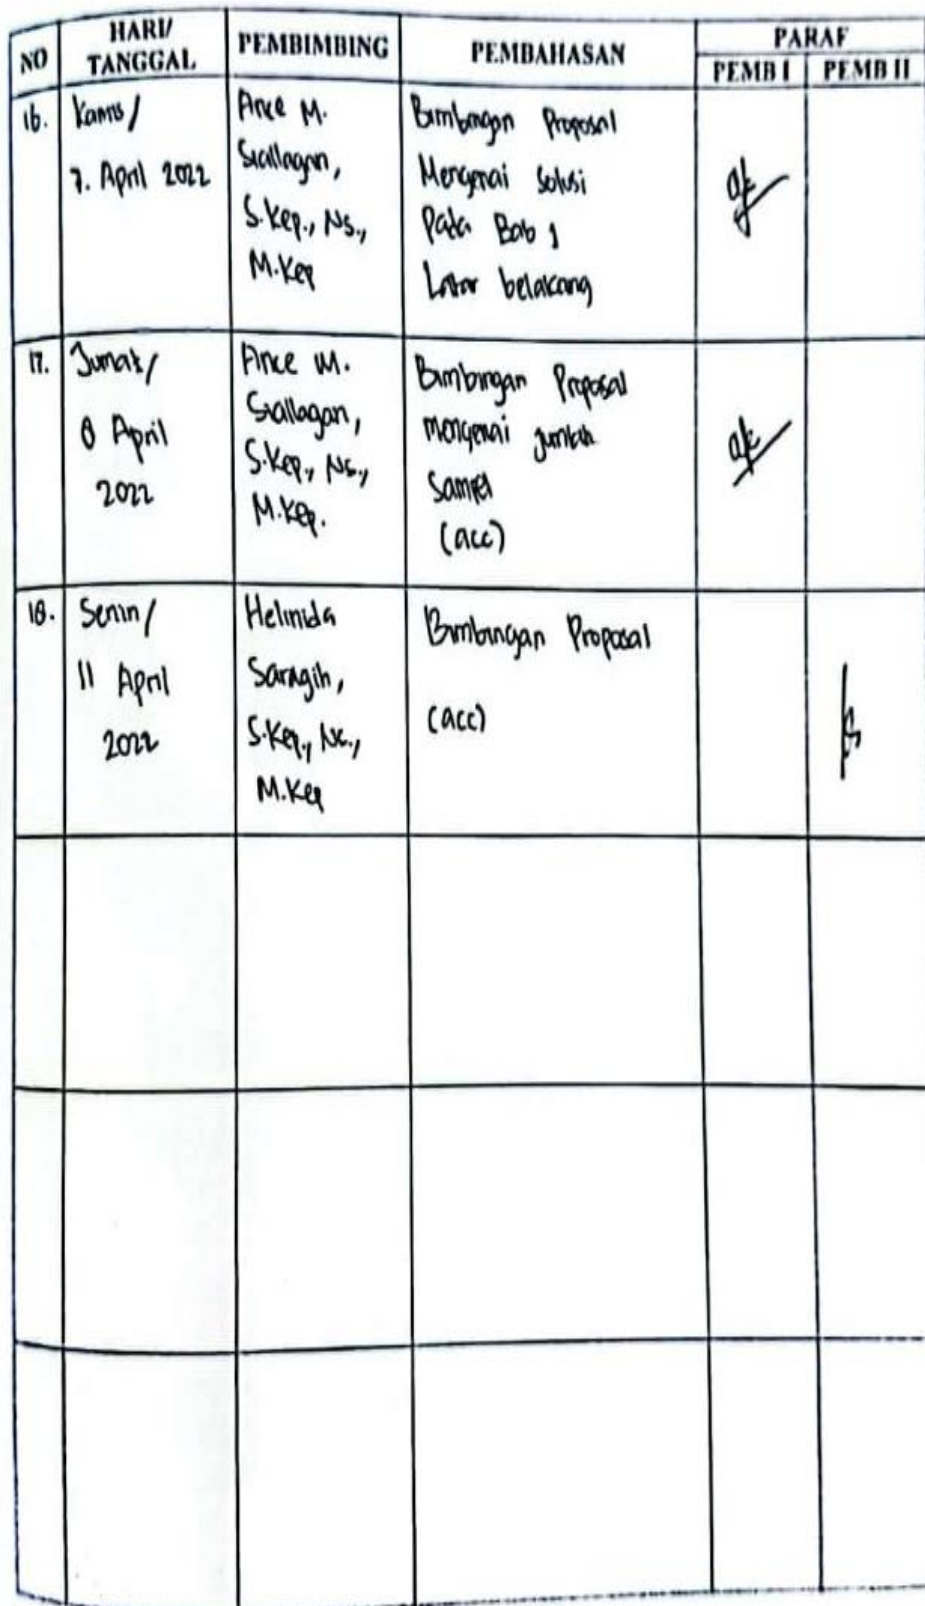 NO HARI/ TANGGAL PEMBIMBING PEMBAHASAN PARAF
PEMB I PEMB II
16. Kamis/
7. April 2022
Ance M.
Siallagan,
S.Kep., Ns.,
M.Kep
Bimbingan Proposal
Mengenai Solusi
Pada Bab 1
Latar belakang
17. Jumat/
8 April
2022
Ance M.
Siallagan,
S.Kep., Ns.,
M.Kep.
Bimbingan Proposal
mengenai jumlah
Sampel
(acc)
18. Senin/
11 April
2022
Helinida
Saragih,
S.Kep., Ns.,
M.Kep
Bimbingan Proposal
(acc)